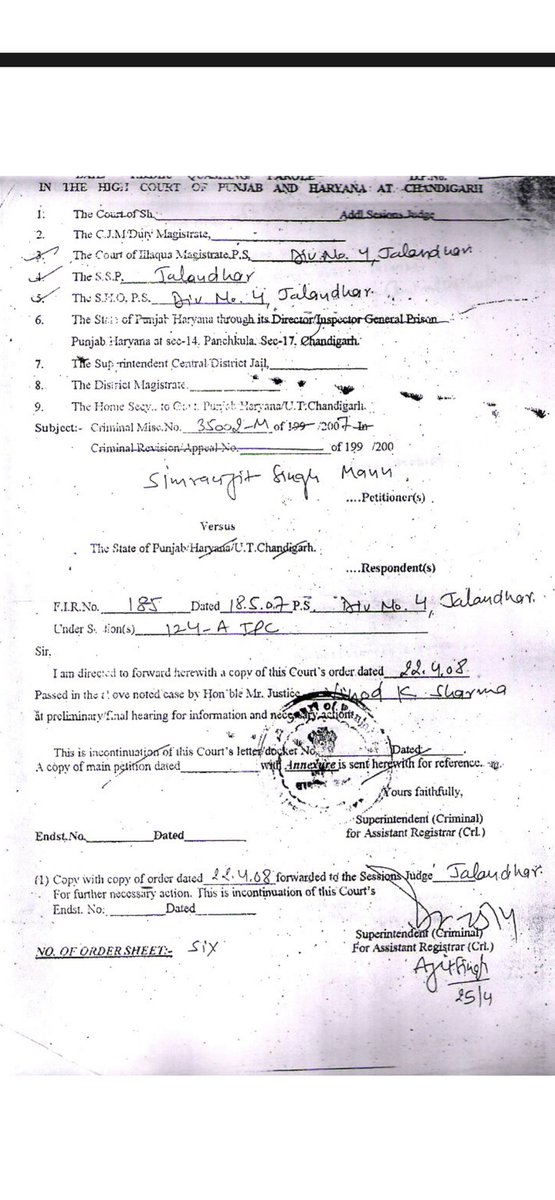 IN THE HIGH COURT OF PUNJAB AND HARYANA AT CHANDIGARH
1. The Court of Sh. Addl Sesions Judge
2. The C.J.M/Duty Magistrate,
3. The Court of Illaqua Magistrate.P.S, Div No. 4, Jalandhar.
4. The S.S.P. Jalandhar
5. The S.H.O, P.S. Div No. 4, Jalandhar.
6. The State of Punjab Haryana through its Director/Inspector General Prison
Punjab Haryana at sec-14, Panchkula, Sec-17, Chandigarh.
7. The Superintendent Central District Jail,
8. The District Magistrate.
9. The Home Secy. to Govt. Punjab Haryana/U.T.Chandigarh.
Subject:- Criminal Misc.No. 35002-M of 199 /2007 In
Criminal Revision/Appeal No. of 199 /200
Simranjit Singh Mann.
....Petitioner(s)
Versus
The State of Punjab/Haryana/U.T.Chandigarh.
....Respondent(s)
F.I.R.No. 185 Dated 18.5.07 P.S. Div No. 4, Jalandhar.
Under Section(s) 124-A IPC
Sir,
I am directed to forward herewith a copy of this Court's order dated 22.4.08
Passed in the above noted case by Hon'ble Mr. Justice Vinod K Sharma
at preliminary/final hearing for information and necessary action.
This is incontinuation of this Court's letter/docket No. Dated
A copy of main petition dated with Annexure is sent herewith for reference.
Yours faithfully,
Superintendent (Criminal)
Endst.No. Dated for Assistant Registrar (Crl.)
(1) Copy with copy of order dated 22.4.08 forwarded to the Sessions Judge Jalandhar.
For further necessary action. This is incontinuation of this Court's
Endst. No: Dated
Superintendent (Criminal)
NO. OF ORDER SHEET:- Six For Assistant Registrar (Crl.)
Ajit Singh
25/4